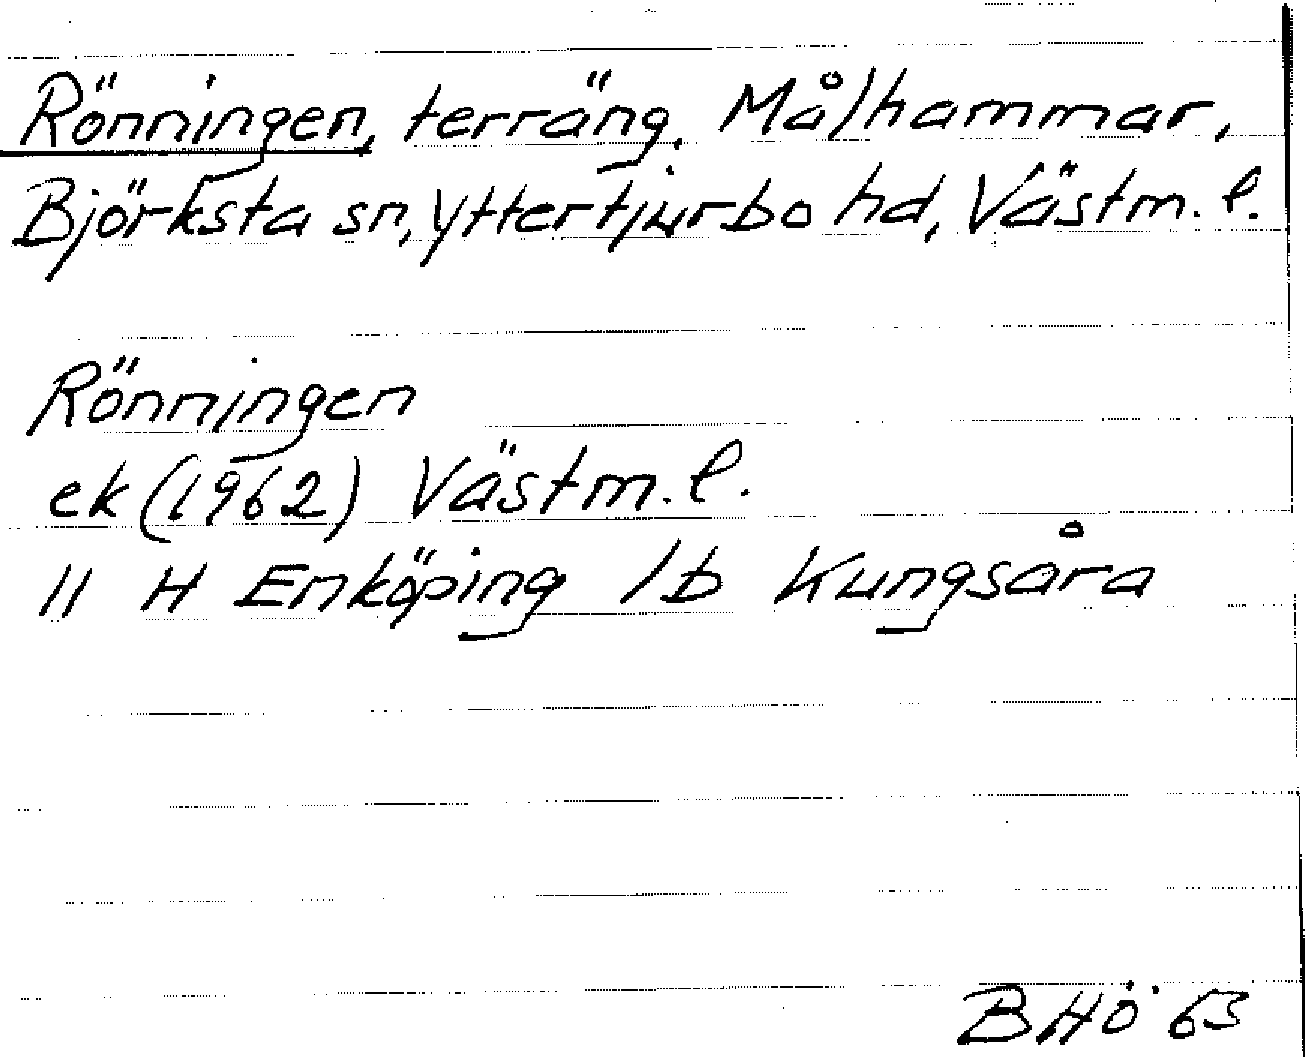 Rönningen, terräng, Målhammar,
Björksta sn, Yttertjurbo hd, Västm. l.
Rönningen
ek (1962) Västm. l.
11 H Enköping 1b Kungsåra
BHÖ 63